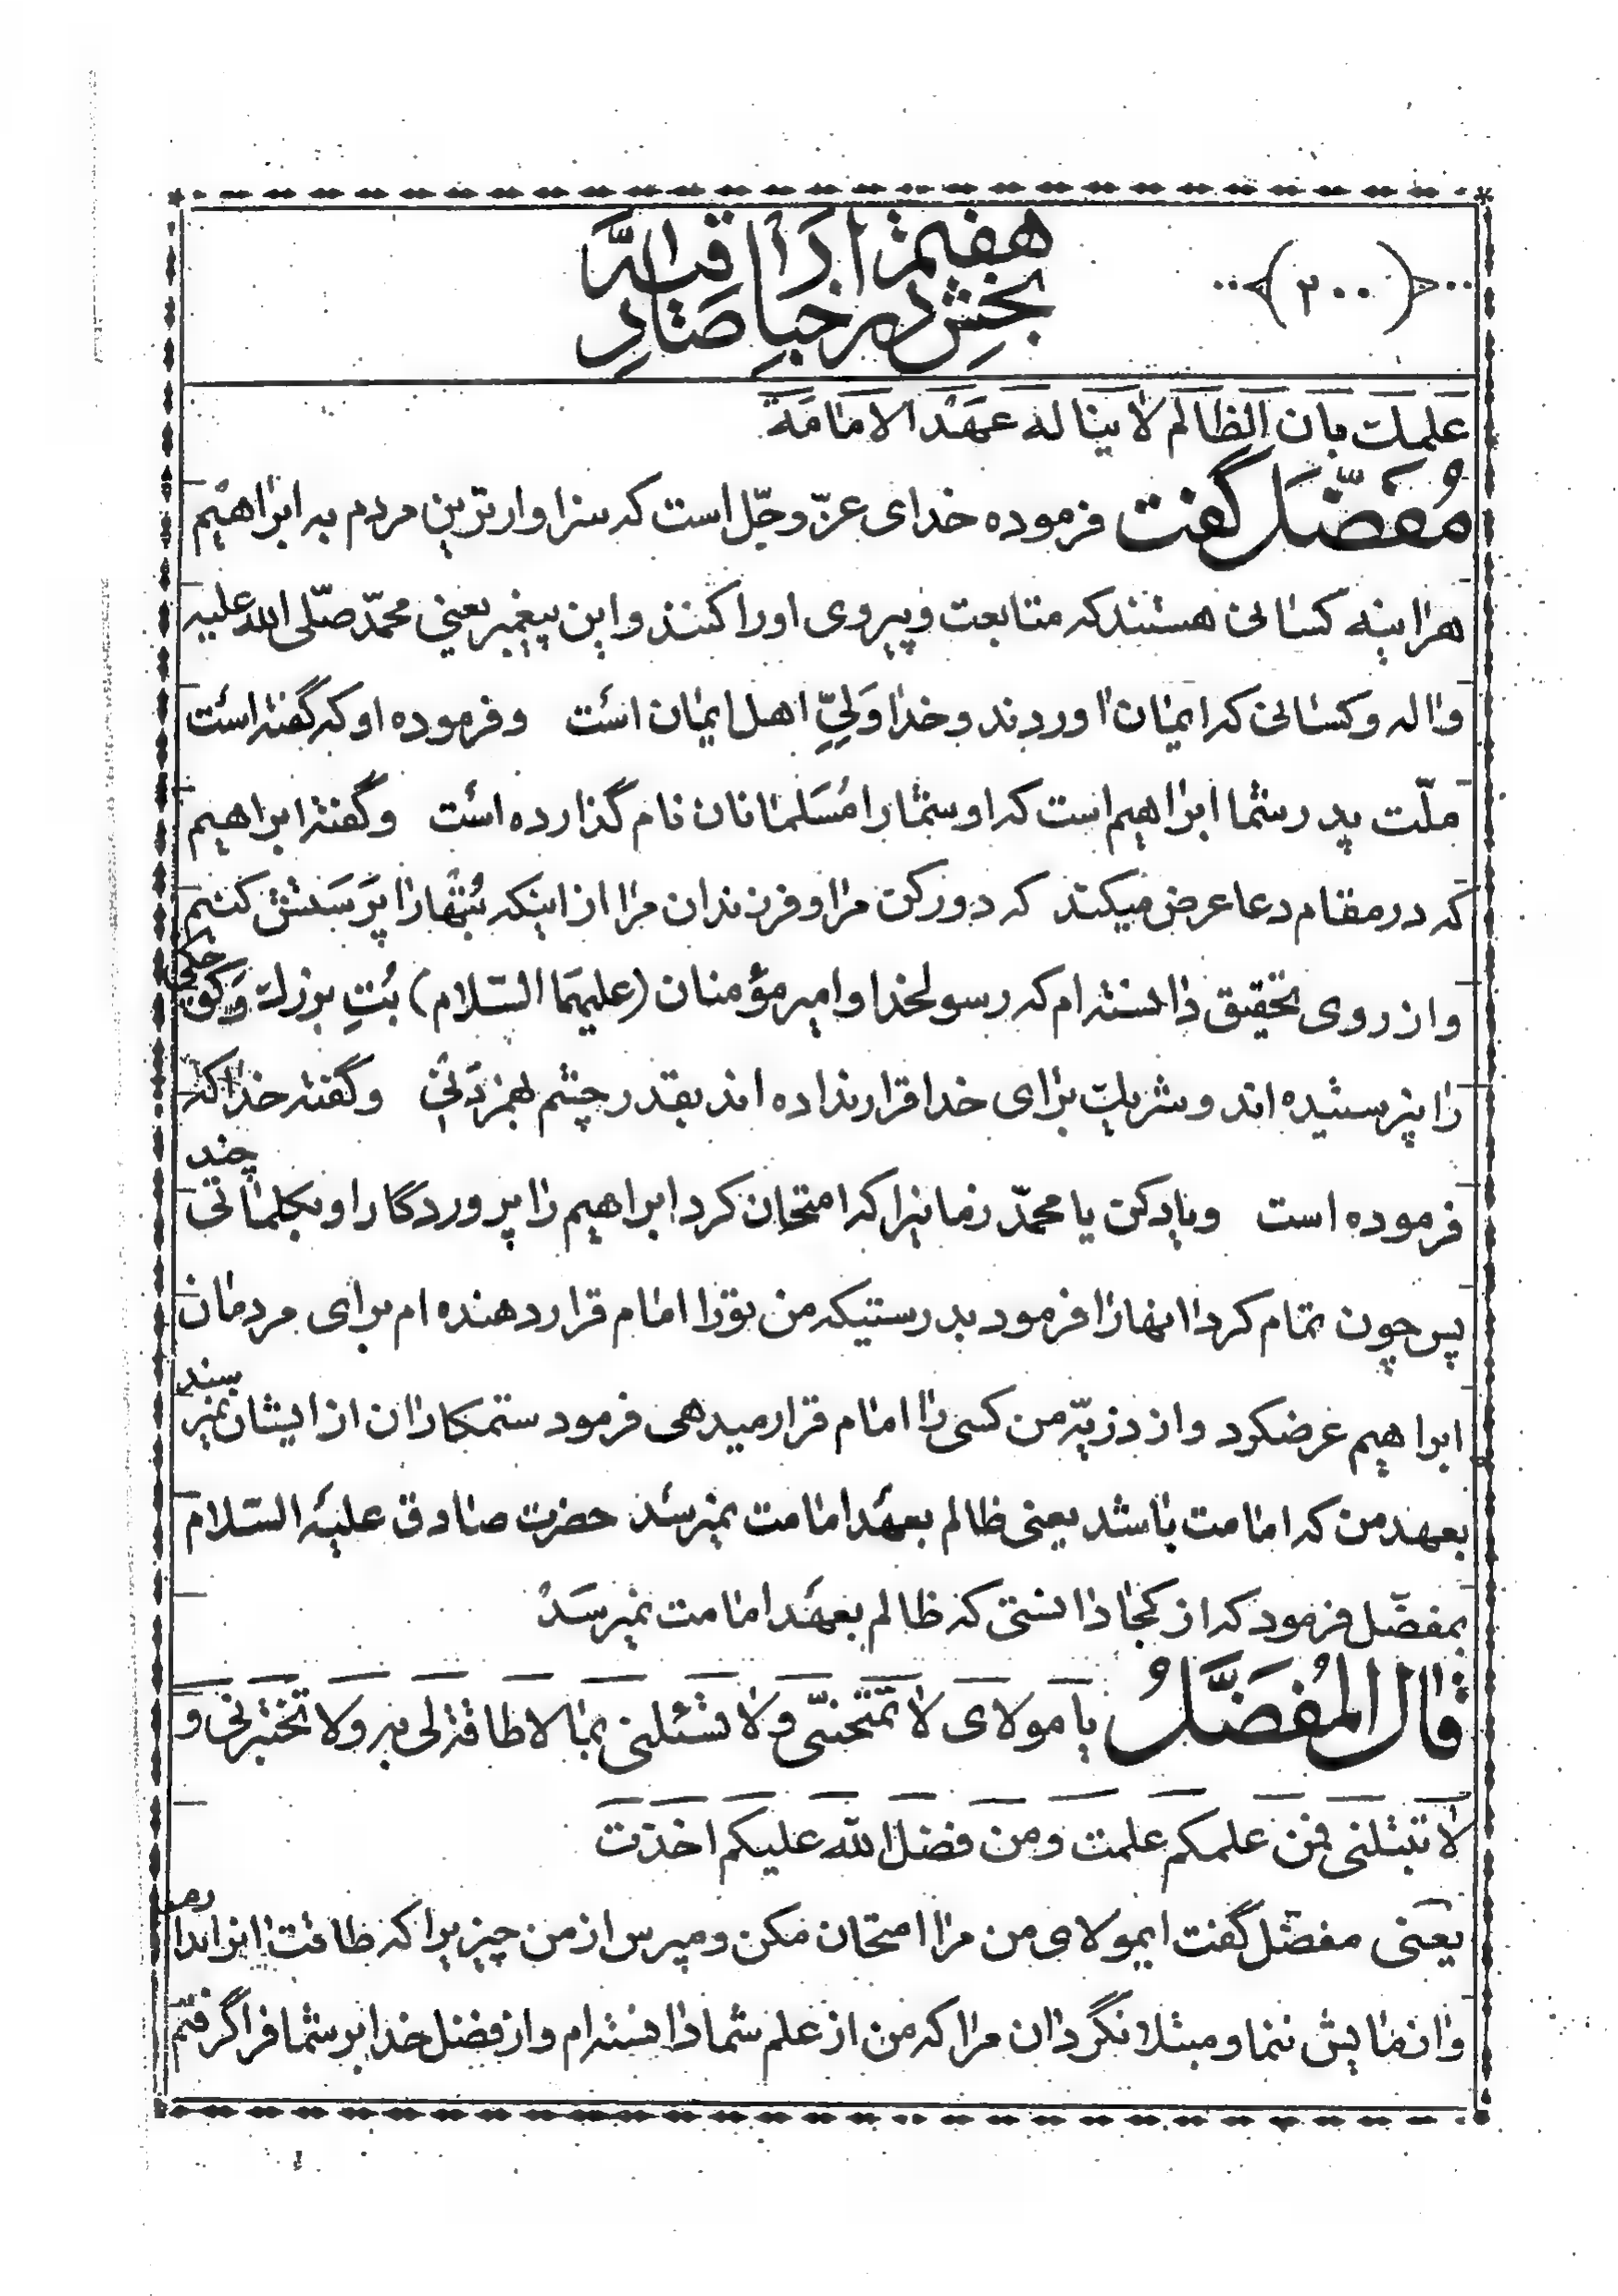 (۲۰۰)
بخش هفتم در اخبار صادقیه
علمت بان الظالم لا یناله عهد الامامة
مُفَضَّل گفت فرموده خدای عزّ وجّل است که سزاوارترین مردم به ابراهیم
هراینه کسانی هستند که متابعت و پیروی او را کنند و این پیغمبر یعنی محمّد صلّی الله علیه
و اله و کسانی که ایمان اوردند و خدا وَلِیِّ اهل ایمان است و فرموده او که گفته است
ملّت پدر شما ابراهیم است که او شما را مُسَلمانان نام گذارده است و گفته ابراهیم
که در مقام دعا عرض میکند که دور کن مرا و فرزندان مرا از اینکه بُتها را پَرَستش کنیم
و از روی تحقیق دانسته ام که رسولخدا و امیر مؤمنان (علیهما السّلام) بُتِ بزرك و کوچکی
را نپرسشیده اند و شریك برای خدا قرار نداده اند بقدر چشم بهم زَدَنی و گفته خدا که
فرموده است و یاد کن یا محمّد زمانیرا که امتحان کرد ابراهیم را پروردگار او بکلماتی چند
پس چون تمام کرد انها را فرمود بدرستیکه من تو را امام قرار دهنده ام برای مردمان
ابراهیم عرضکرد و از ذریّه من کسی را امام قرار میدهی فرمود ستمکاران از ایشان نمیرسند
بعهد من که امامت باشد یعنی ظالم بعهد امامت نمیرسد حضرت صادق علیه السّلام
بمفضّل فرمود که از کجا دانستی که ظالم بعهد امامت نمیرسد
قال المُفضَّلُ یا مولای لا تمتحنّی و لا تسئلنی بما لا طاقة لی به و لا تختبرنی و
لا تبتلنی فمن علمکم علمت و من فضل الله علیکم اخذت
یعنی مفضّل گفت ایمولای من مرا امتحان مکن و مپرس از من چیزیرا که طاقت انرا ندارم
و ازمایش ننما و مبتلا نگردان مرا که من از علم شما دانسته ام و از فضل خدا بر شما فرا گرفتم